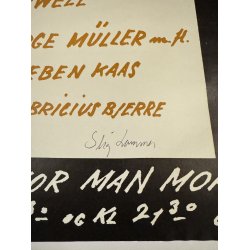 WELL
RGE MÜLLER m.fl.
EBEN KAAS
BRICIUS BJERRE
Stig Lommer
FOR MAN MOR
8= OG KL 21 30